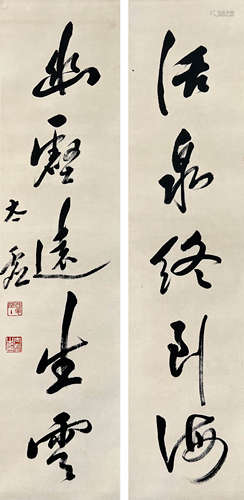 活泉終到海
幽壑遠生雲
太虛